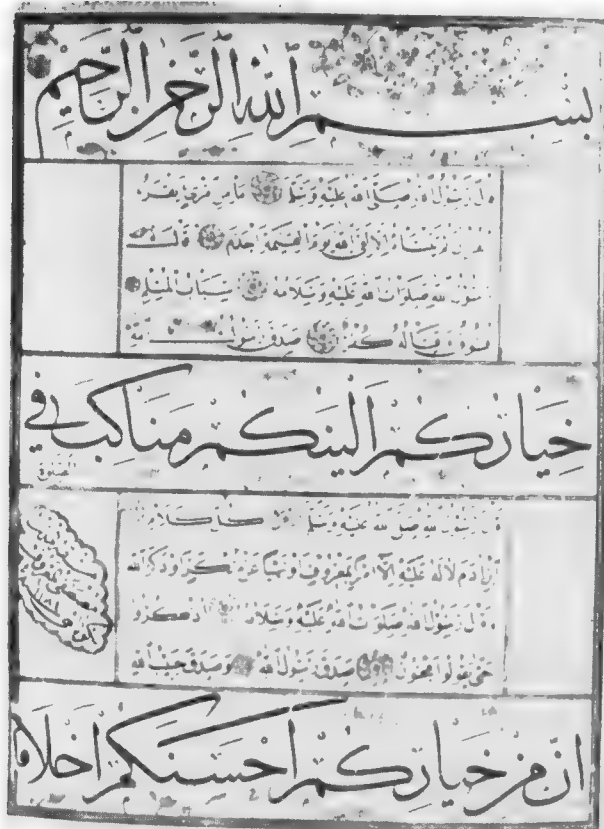 بسم الله الرحمن الرحيم
قال رسول الله صلى الله عليه وسلم ما من
الله يوم القيمة اجذم قال
رسول الله صلوات الله عليه وسلامه سباب المسلم
فسوق وقتاله كفر صدق رسول الله
خياركم الينكم مناكب في
الصلوة
قال رسول الله صلى الله عليه وسلم كل كلام
ابن ادم لا له عليه الا امر بمعروف او نهيا عن منكر او ذكر الله
قال رسول الله صلوات الله عليه وسلامه اذكروا
حتى يقولوا مجنون صدق رسول الله وصدق حبيب الله
ان من خياركم احسنكم اخلاقا